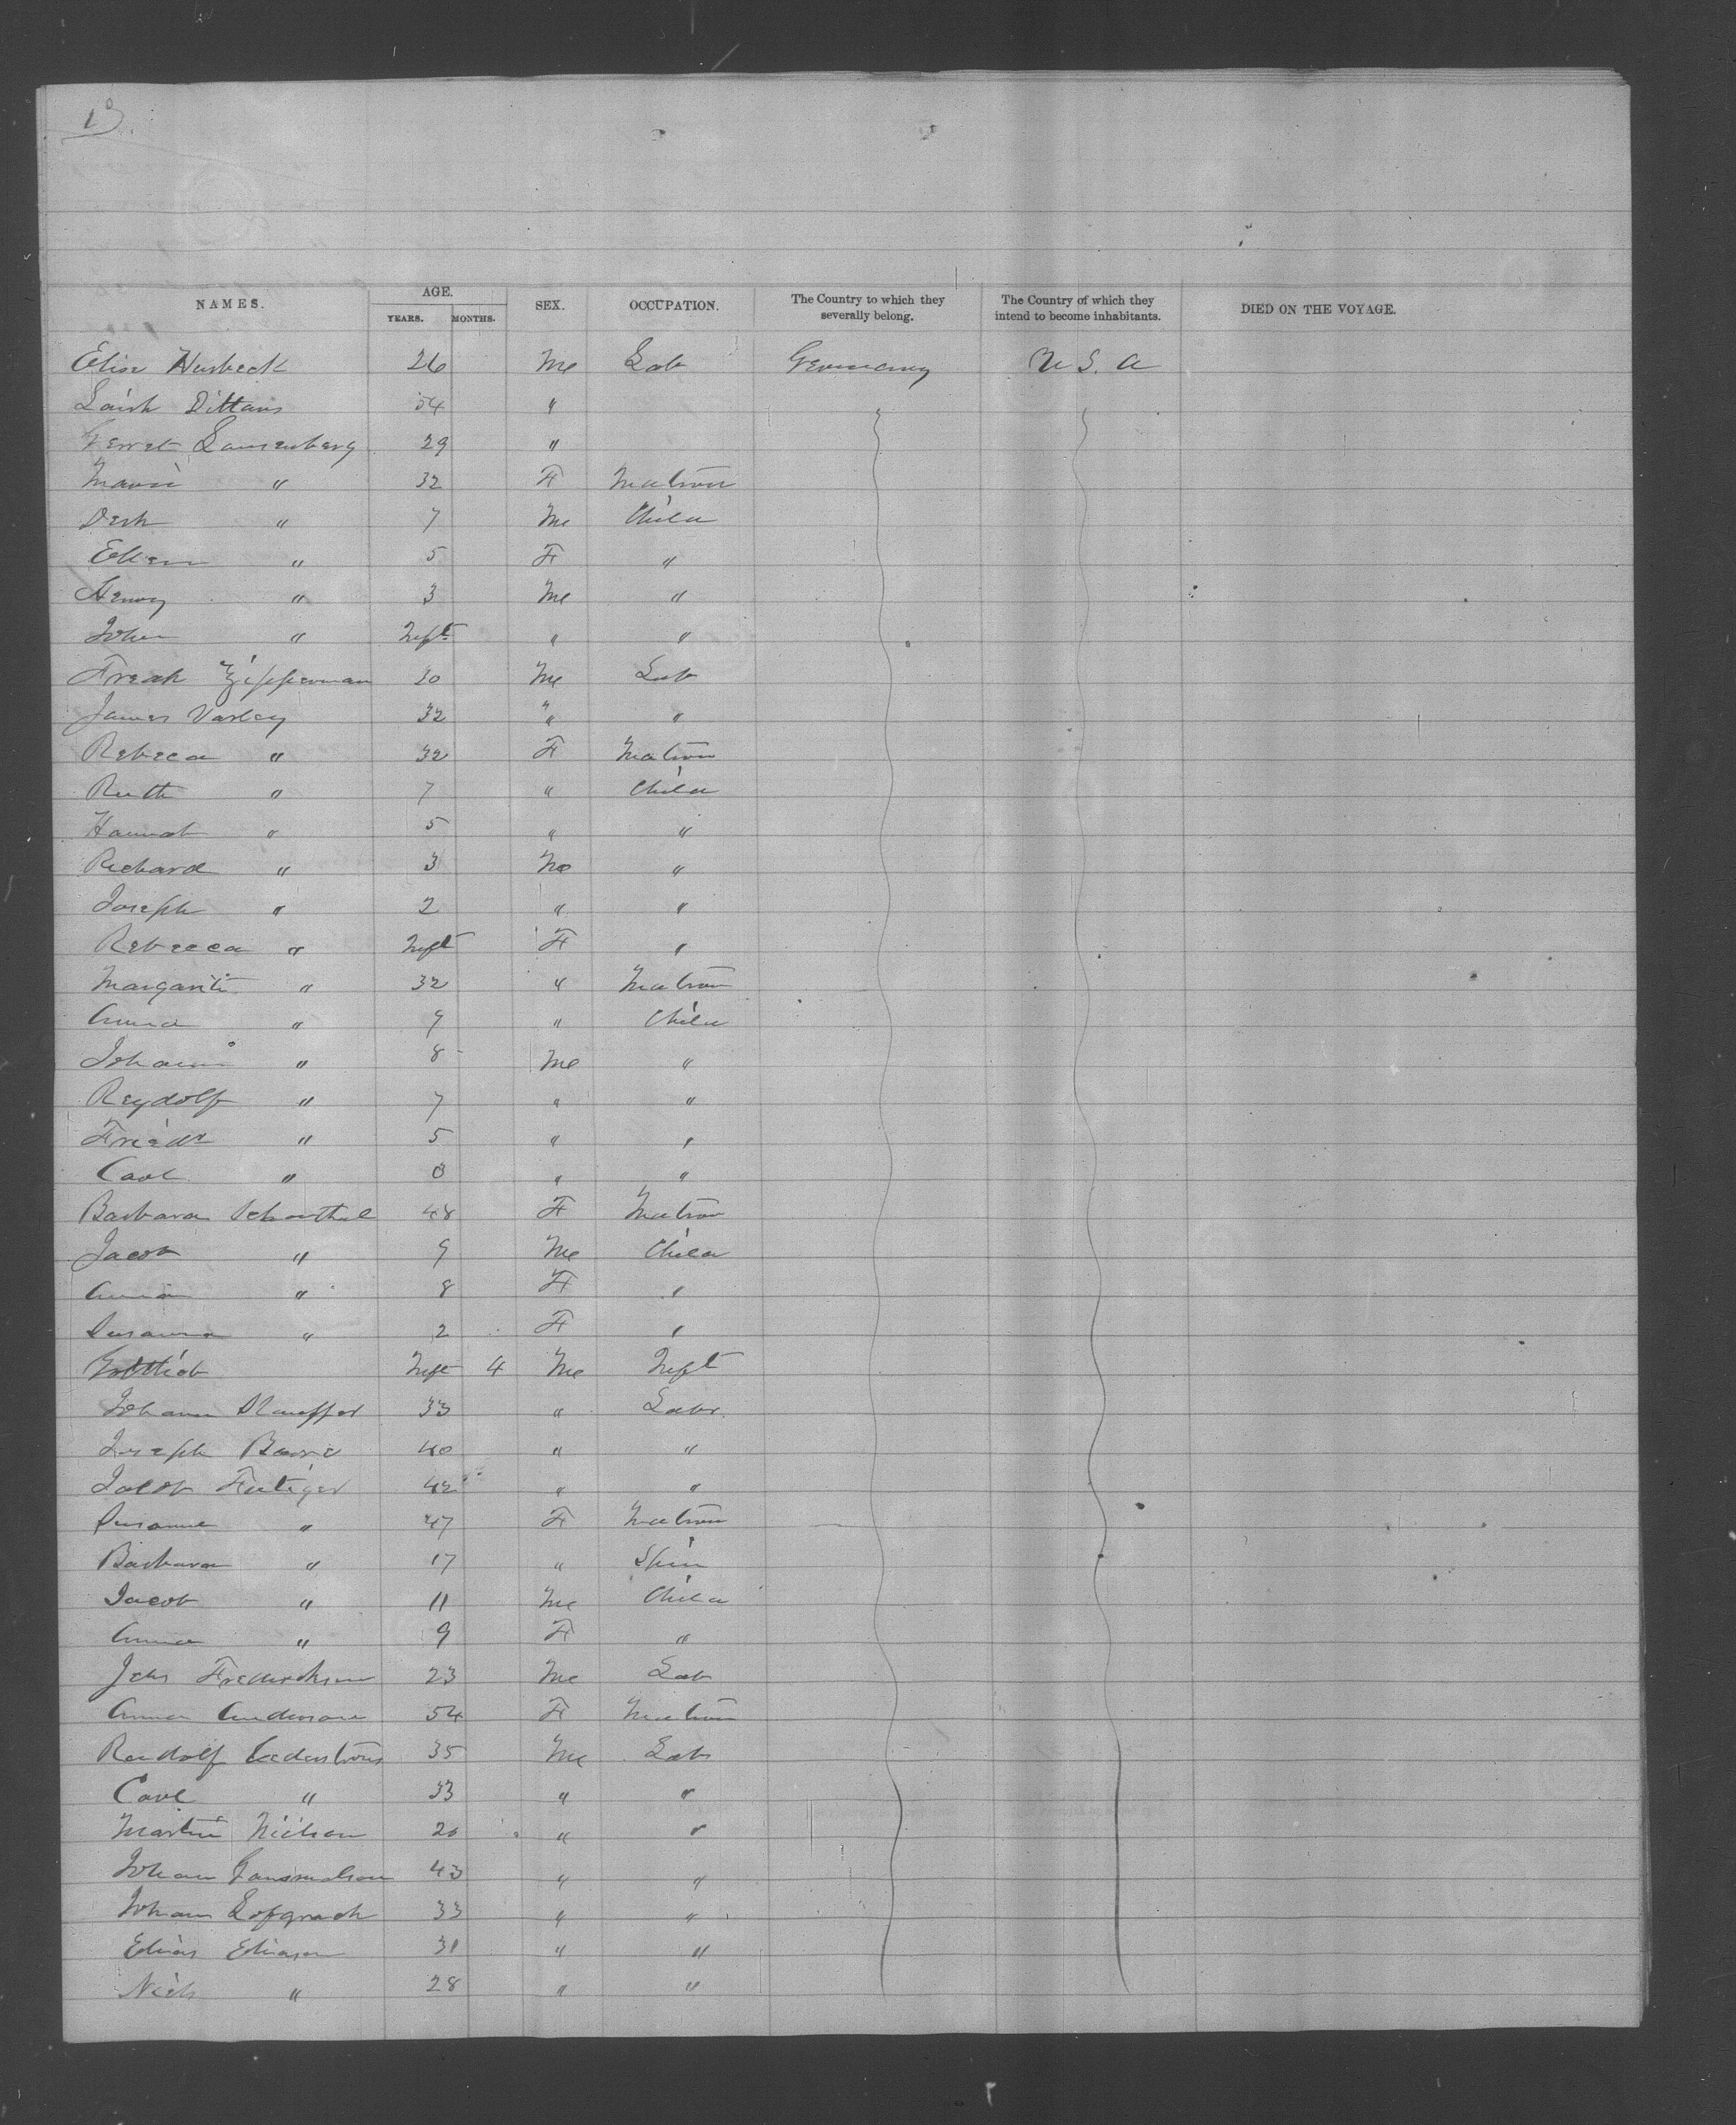 13
NAMES. AGE. YEARS. MONTHS. SEX. OCCUPATION. The Country to which they severally belong. The Country of which they intend to become inhabitants. DIED ON THE VOYAGE.
Elise Husbeck 26 Me Lab Germany U S. A
54 "
Gerret 29 "
Marie " 32 F Matron
Derk " 7 Me Child
Ellen " 5 F "
Henry " 3 Me "
John " Inft " "
Freak Zipperman 20 Me Lab
James Varley 32 " "
Rebeca " 32 F Matron
Ruth " 7 " Child
Hannah " 5 " "
Richard " 3 Me "
Joseph " 2 " "
Rebecca " Inft F "
Margarit " 32 " Matron
Anna " 9 " Child
Johann " 8 Me "
Reydolf " 7 " "
Friedr " 5 " "
Carl " 3 " "
Barbara Schonthal 48 F Matron
Jacob " 9 Me Child
Anna " 8 F "
Susanna " 2 F "
Gottliob Inft 4 Me Inft
Johann Stauffer 33 " Labr.
Joseph 40 " "
Jacob Frutiger 42 " "
Susanne " 47 F Matron
Barbara " 17 " Spin
Jacob " 11 Me Child
Anna " 9 F "
Jens Fredericksen 23 Me Lab
Anna Anderson 54 F Matron
Rudolf Cederstrom 35 Me Lab
Carl " 33 " "
Martin Nielsen 26 " "
Johan 43 " "
Johan 33 " "
Elias Eliason 31 " "
Niels " 28 " "